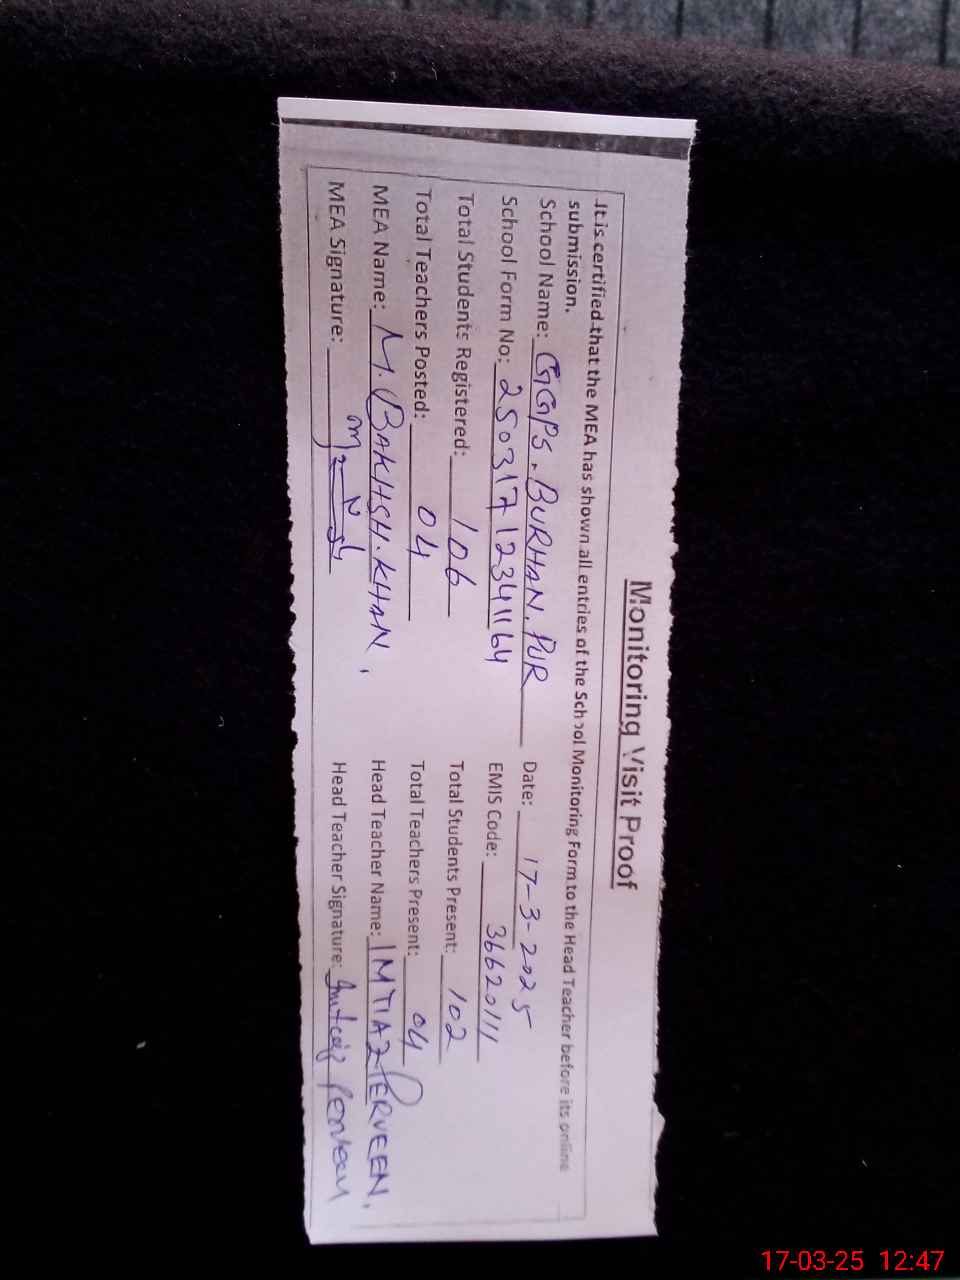 Monitoring Visit Proof
It is certified that the MEA has shown all entries of the School Monitoring Form to the Head Teacher before its online
submission.
School Name: GGPS. BURHAN. PUR Date: 17-3-2025
School Form No: 25031712341164 EMIS Code: 36620111
Total Students Registered: 106 Total Students Present: 102
Total Teachers Posted: 04 Total Teachers Present: 04
MEA Name: M. BAKHSH. KHAN, Head Teacher Name: IMTIAZ PERVEEN,
MEA Signature: Head Teacher Signature: Imtiaz Perveen
17-03-25 12:47